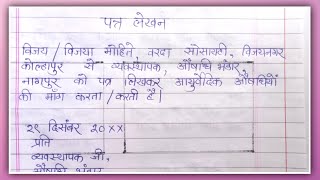 पत्र लेखन
विजय / विजया मोहिते, वरदा सोसायटी, विजयनगर
कोल्हापुर से व्यवस्थापक, औषधि भंडार,
नागपुर को पत्र लिखकर आयुर्वेदिक औषधियों
की मांग करता / करती है।
२९ दिसंबर २०××
प्रति
व्यवस्थापक जी,
औषधी भंडार